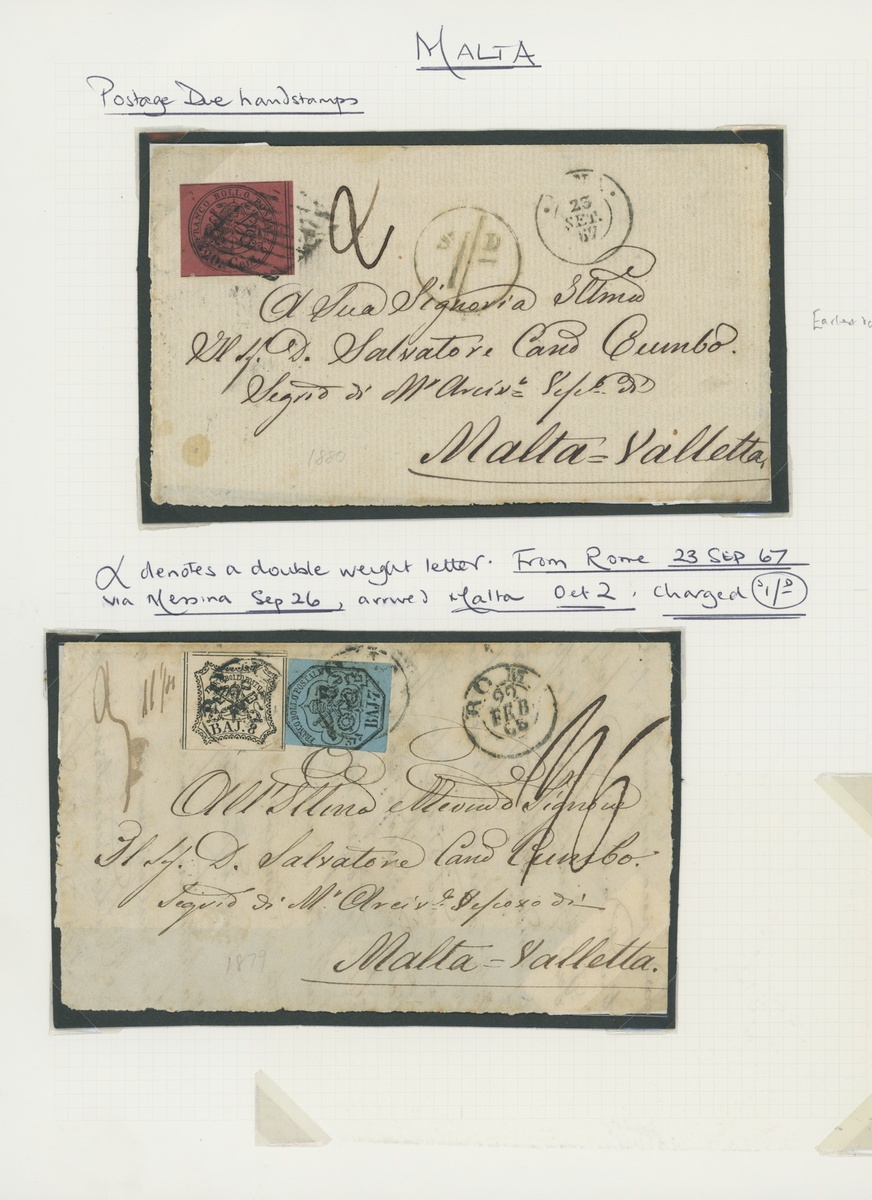 MALTA
Postage Due handstamps
FRANCO BOLLO POSTALE
80. Cent.
S D
1/=
23
SET.
67
A Sua Signoria Illma
Il Sig. D. Salvatore Cano Cumbo.
Segrio di Mr Arciv. Vesc. di
Malta = Valletta.
1880
Earliest
α denotes a double weight letter. From Rome 23 SEP 67
via Messina Sep 26, arrived Malta Oct 2. Charged S1/=D
BAJ. 8
FRANCO BOLLO POSTALE
BAJ. 7
ROM
22
FEB
All' Illmo e Revmo Signore
Il Sig. D. Salvatore Cano Cumbo.
Segrio di Mr Arciv. Vescovo di
Malta = Valletta.
1879